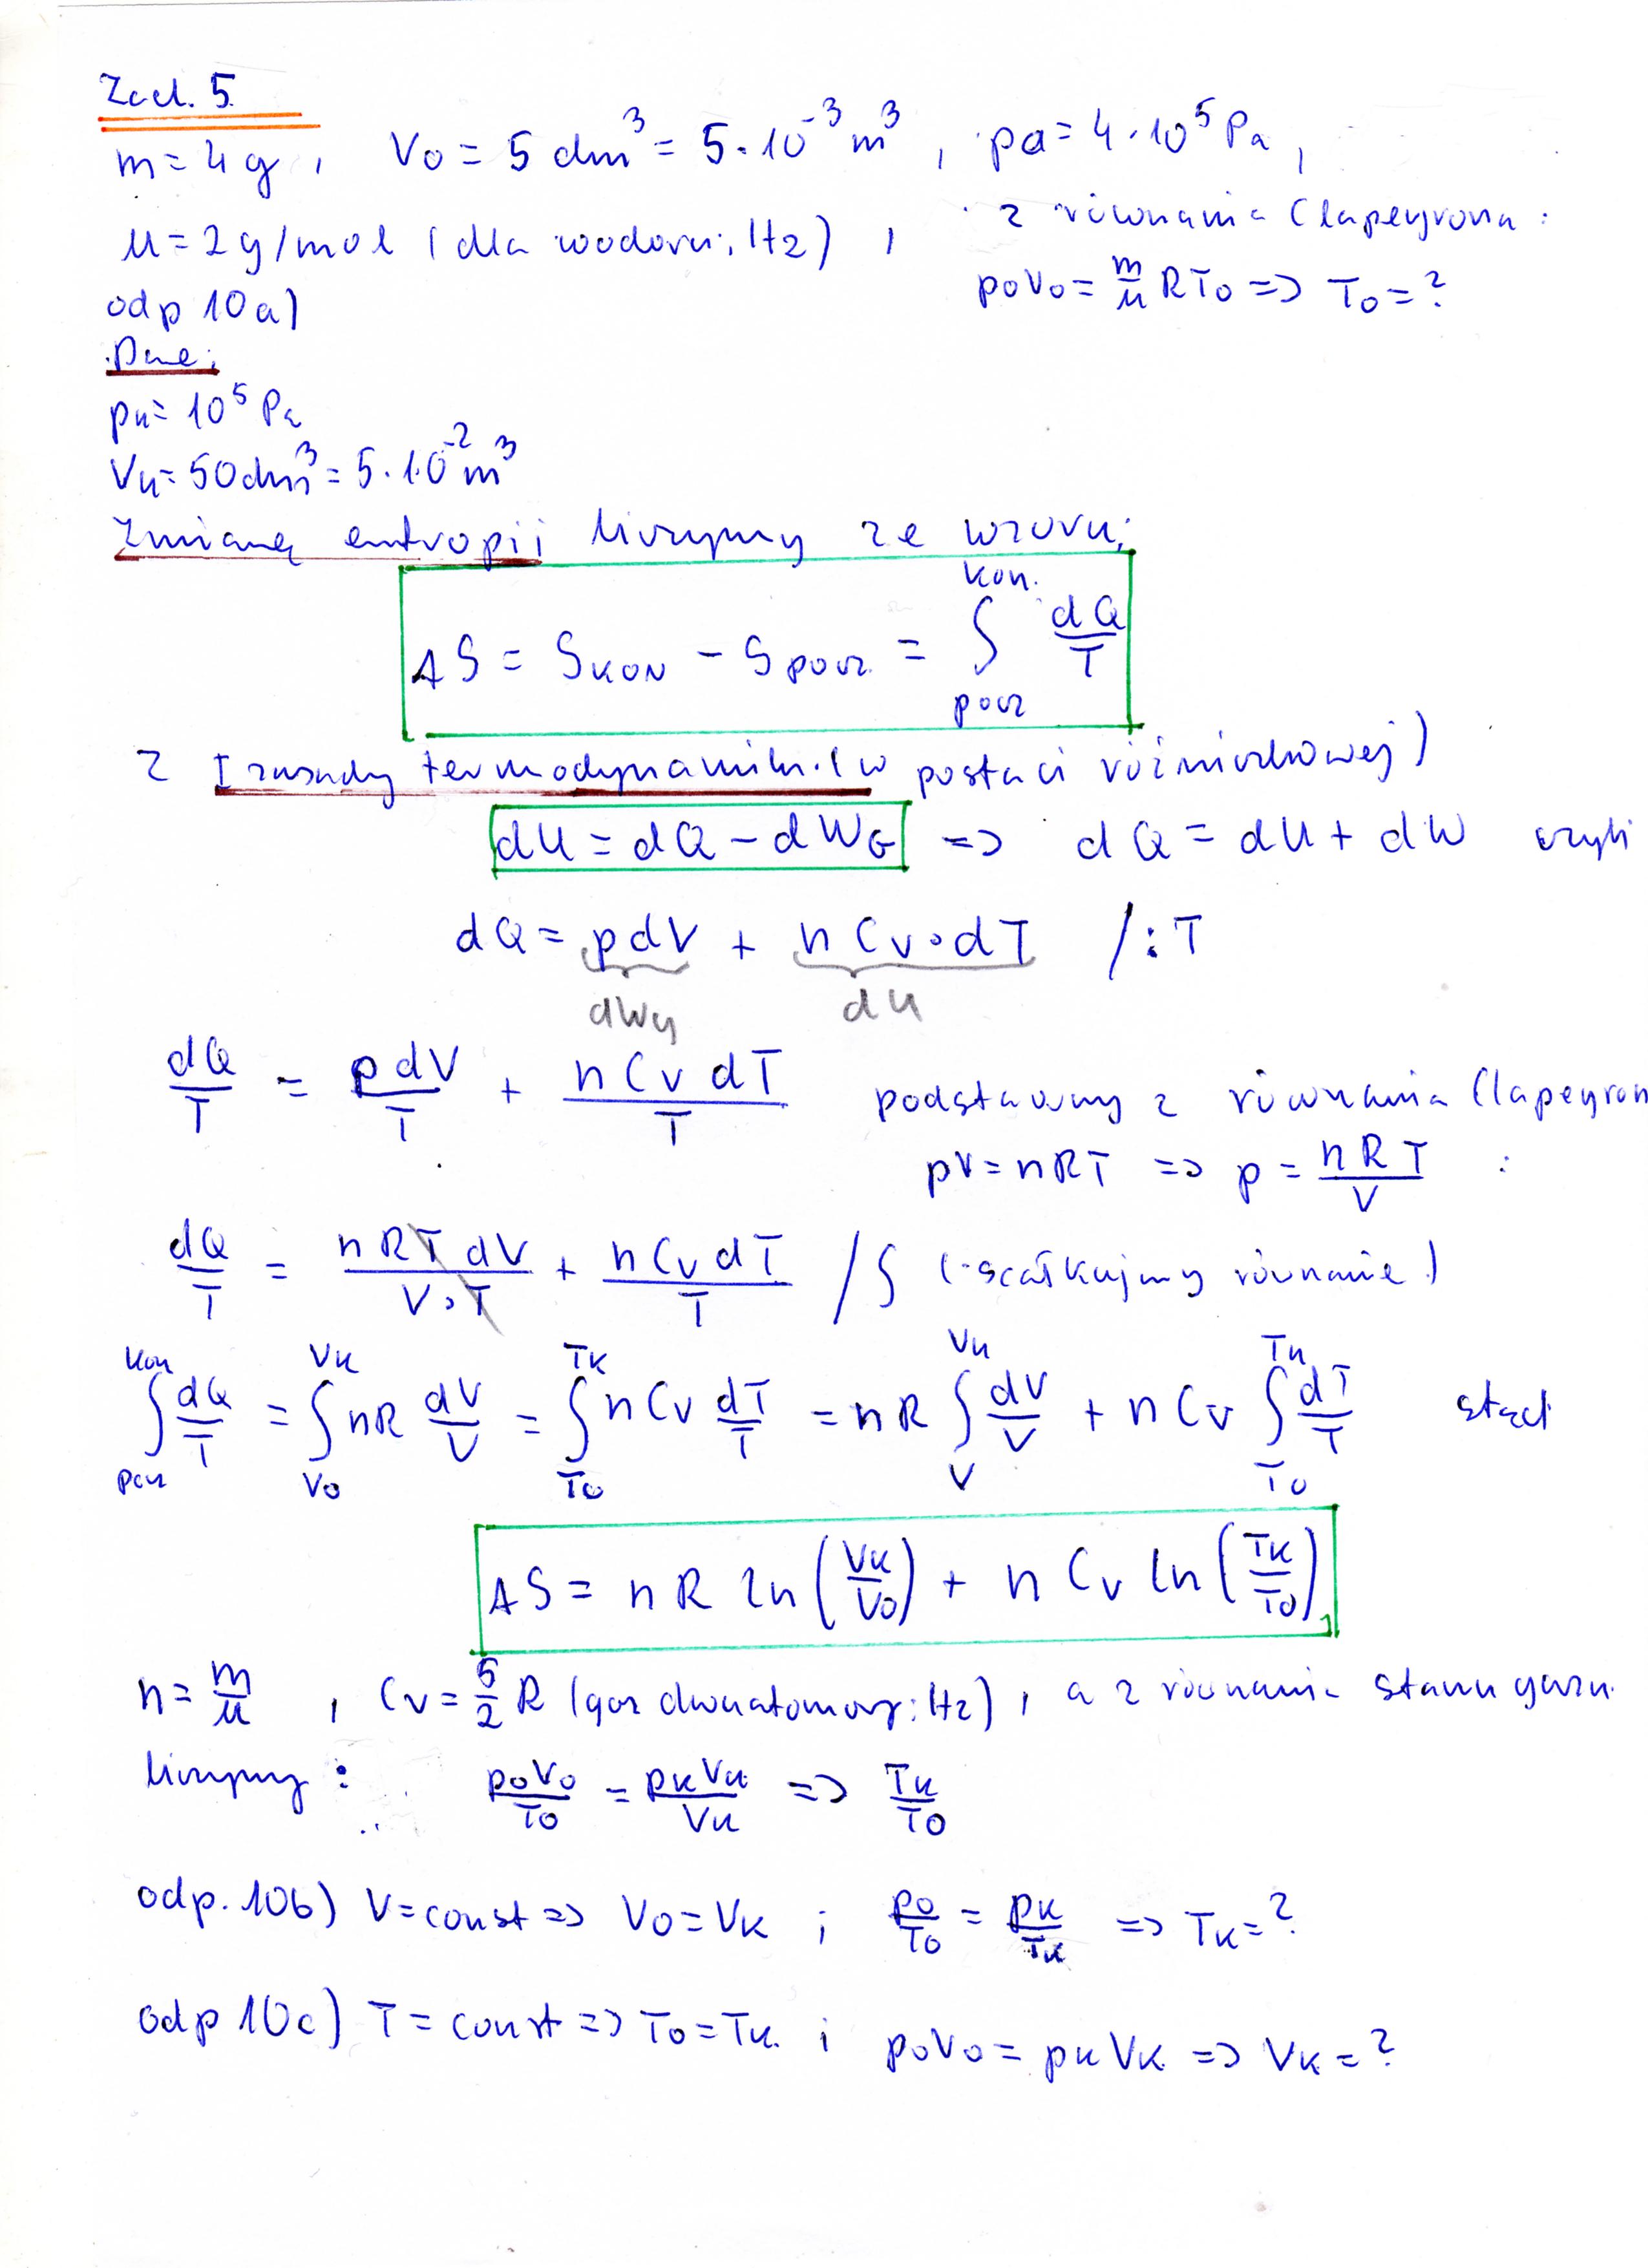 Zad. 5
m = 4 g , V₀ = 5 dm³ = 5 · 10⁻³ m³ , pa = 4 · 10⁵ Pa ,
μ = 2 g/mol (dla wodoru; H2) , z równania Clapeyrona :
p₀V₀ = m/μ RT₀ => T₀ = ?
odp 10a)
Dane:
pk = 10⁵ Pa
Vk = 50 dm³ = 5 · 10⁻² m³
Zmianę entropii liczymy ze wzoru:
ΔS = S_KON - S_POCZ = ∫_pocz^kon. dQ/T
z I zasady termodynamiki (w postaci różniczkowej)
dU = dQ - dW_G => dQ = dU + dW czyli
dQ = pdV + n Cv · dT / : T
dWg dU
dQ/T = p dV/T + n Cv dT/T podstawmy z równania Clapeyron
pV = nRT => p = nRT/V :
dQ/T = nRT dV/V · T + n Cv dT/T /∫ (scałkujmy równanie)
∫_pocz^kon dQ/T = ∫_V₀^Vk nR dV/V = ∫_T₀^Tk n Cv dT/T = nR ∫_V^Vk dV/V + n Cv ∫_T₀^Tk dT/T stąd
ΔS = nR ln (Vk/V₀) + n Cv ln (Tk/T₀)
n = m/μ , Cv = 5/2 R (gaz dwuatomowy: H2) , a z równania stanu gazu
liczymy : p₀V₀/T₀ = pkVk/Vk => Tk/T₀
odp. 10b) V = const => V₀ = Vk ; p₀/T₀ = pk/Tk => Tk = ?
odp 10c) T = const => T₀ = Tk i p₀V₀ = pkVk => Vk = ?